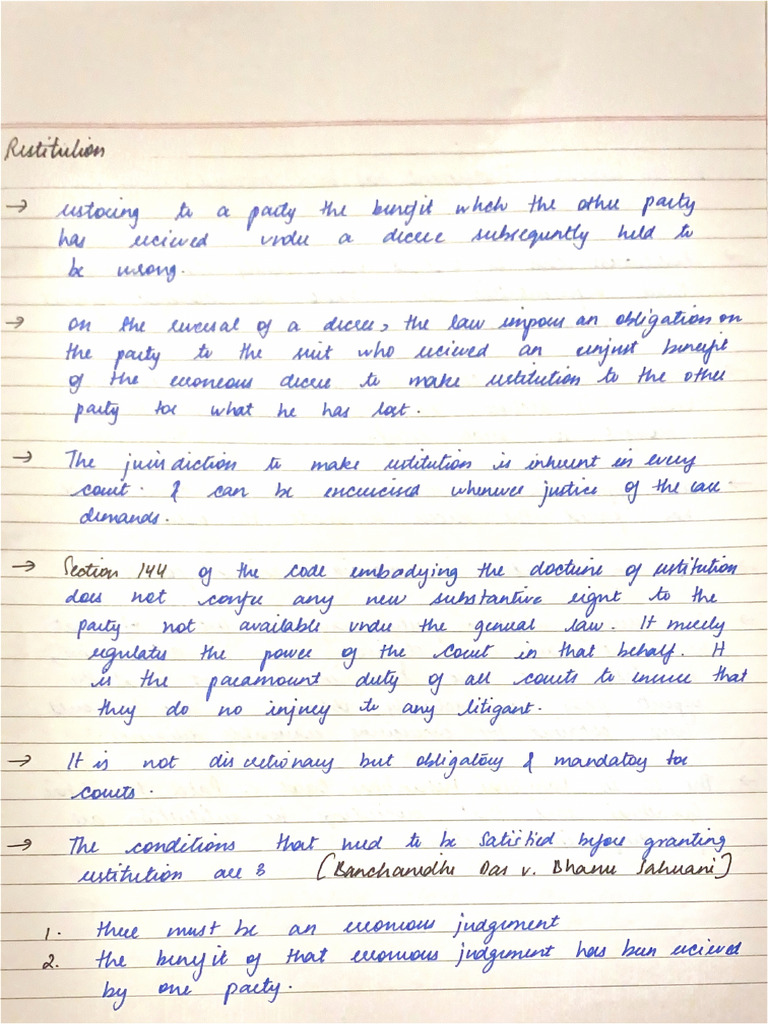 Restitution
→ restoring to a party the benefit which the other party
has recieved under a decree subsequently held to
be wrong.
→ on the reversal of a decree, the law imposes an obligation on
the party to the suit who recieved an unjust benefit
of the erroneous decree to make restitution to the other
party for what he has lost.
→ The jurisdiction to make restitution is inherent in every
court. & can be excercised whenever justice of the case
demands.
→ Section 144 of the code embodying the doctrine of restitution
does not confer any new substantive right to the
party not available under the general law. It merely
regulates the power of the court in that behalf. It
is the paramount duty of all courts to ensure that
they do no injury to any litigant.
→ It is not discretionary but obligatory & mandatory for
courts.
→ The conditions that need to be satisfied before granting
restitution are : (Banchanidhi Das v. Bhanu Sahuani)
1. there must be an erronous judgement
2. the benefit of that erronous judgement has been recieved
by one party.